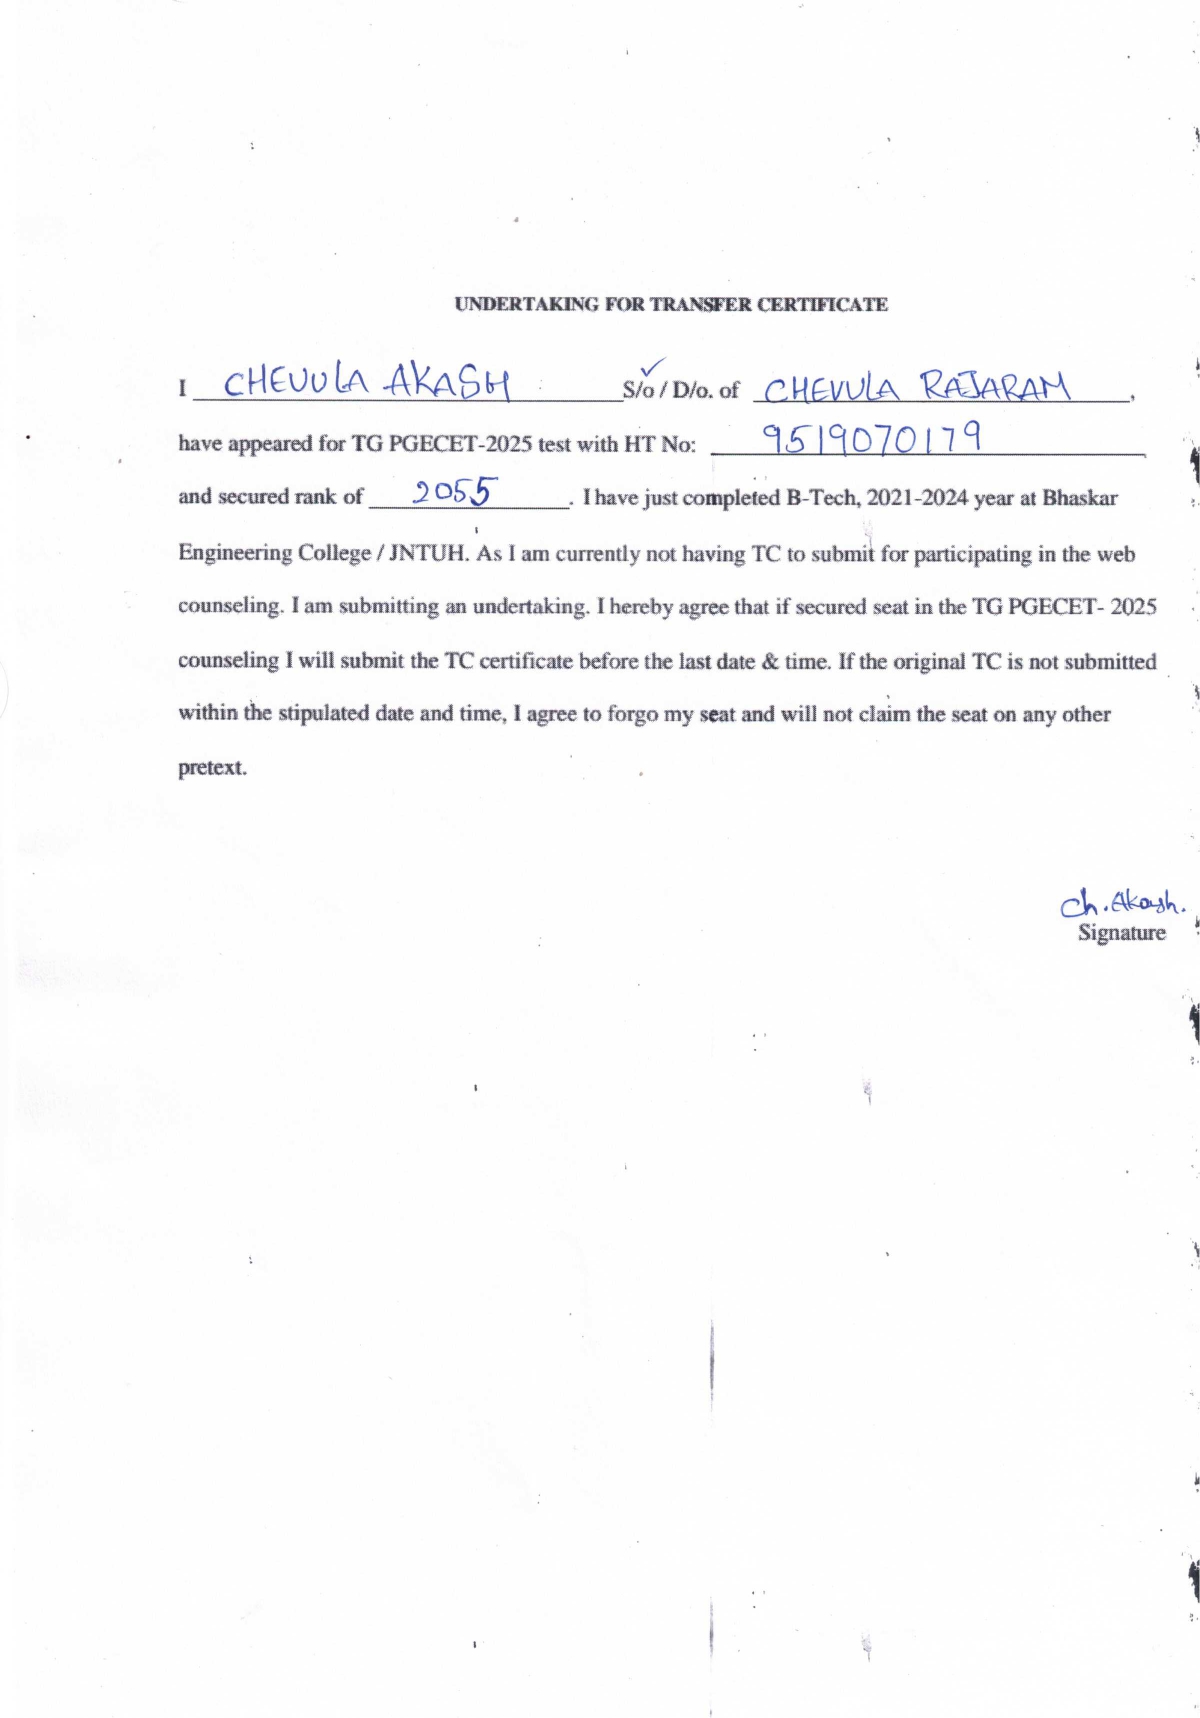 UNDERTAKING FOR TRANSFER CERTIFICATE
I CHEVULA AKASH S/o / D/o. of CHEVULA RAJARAM,
have appeared for TG PGECET-2025 test with HT No: 9519070179
and secured rank of 2055. I have just completed B-Tech, 2021-2024 year at Bhaskar
Engineering College / JNTUH. As I am currently not having TC to submit for participating in the web
counseling. I am submitting an undertaking. I hereby agree that if secured seat in the TG PGECET- 2025
counseling I will submit the TC certificate before the last date & time. If the original TC is not submitted
within the stipulated date and time, I agree to forgo my seat and will not claim the seat on any other
pretext.
Ch. Akash.
Signature